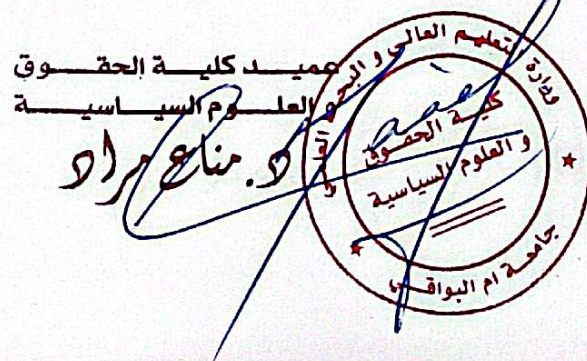 عميد كلية الحقوق
و العلوم السياسية
د. مناع مراد
وزارة التعليم العالي و البحث العلمي
كلية الحقوق
و العلوم السياسية
جامعة ام البواقي